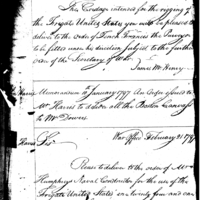 The Cordage intended for the rigging of
the Frigate United States you will be pleased to
deliver to the order of Tench Francis the Purveyor
to be fitted under his direction subject to the further
order of the Secretary of War
James McHenry
Harris Memorandum 21 January 1797 An Order issued to
Mr Harris to deliver all the Boston Canvass
to Mr Dowers
War office February 21 1797
Harris Sir
Please to deliver to the order of Mr
Humphreys Naval Constructor for the use of the
Frigate United States